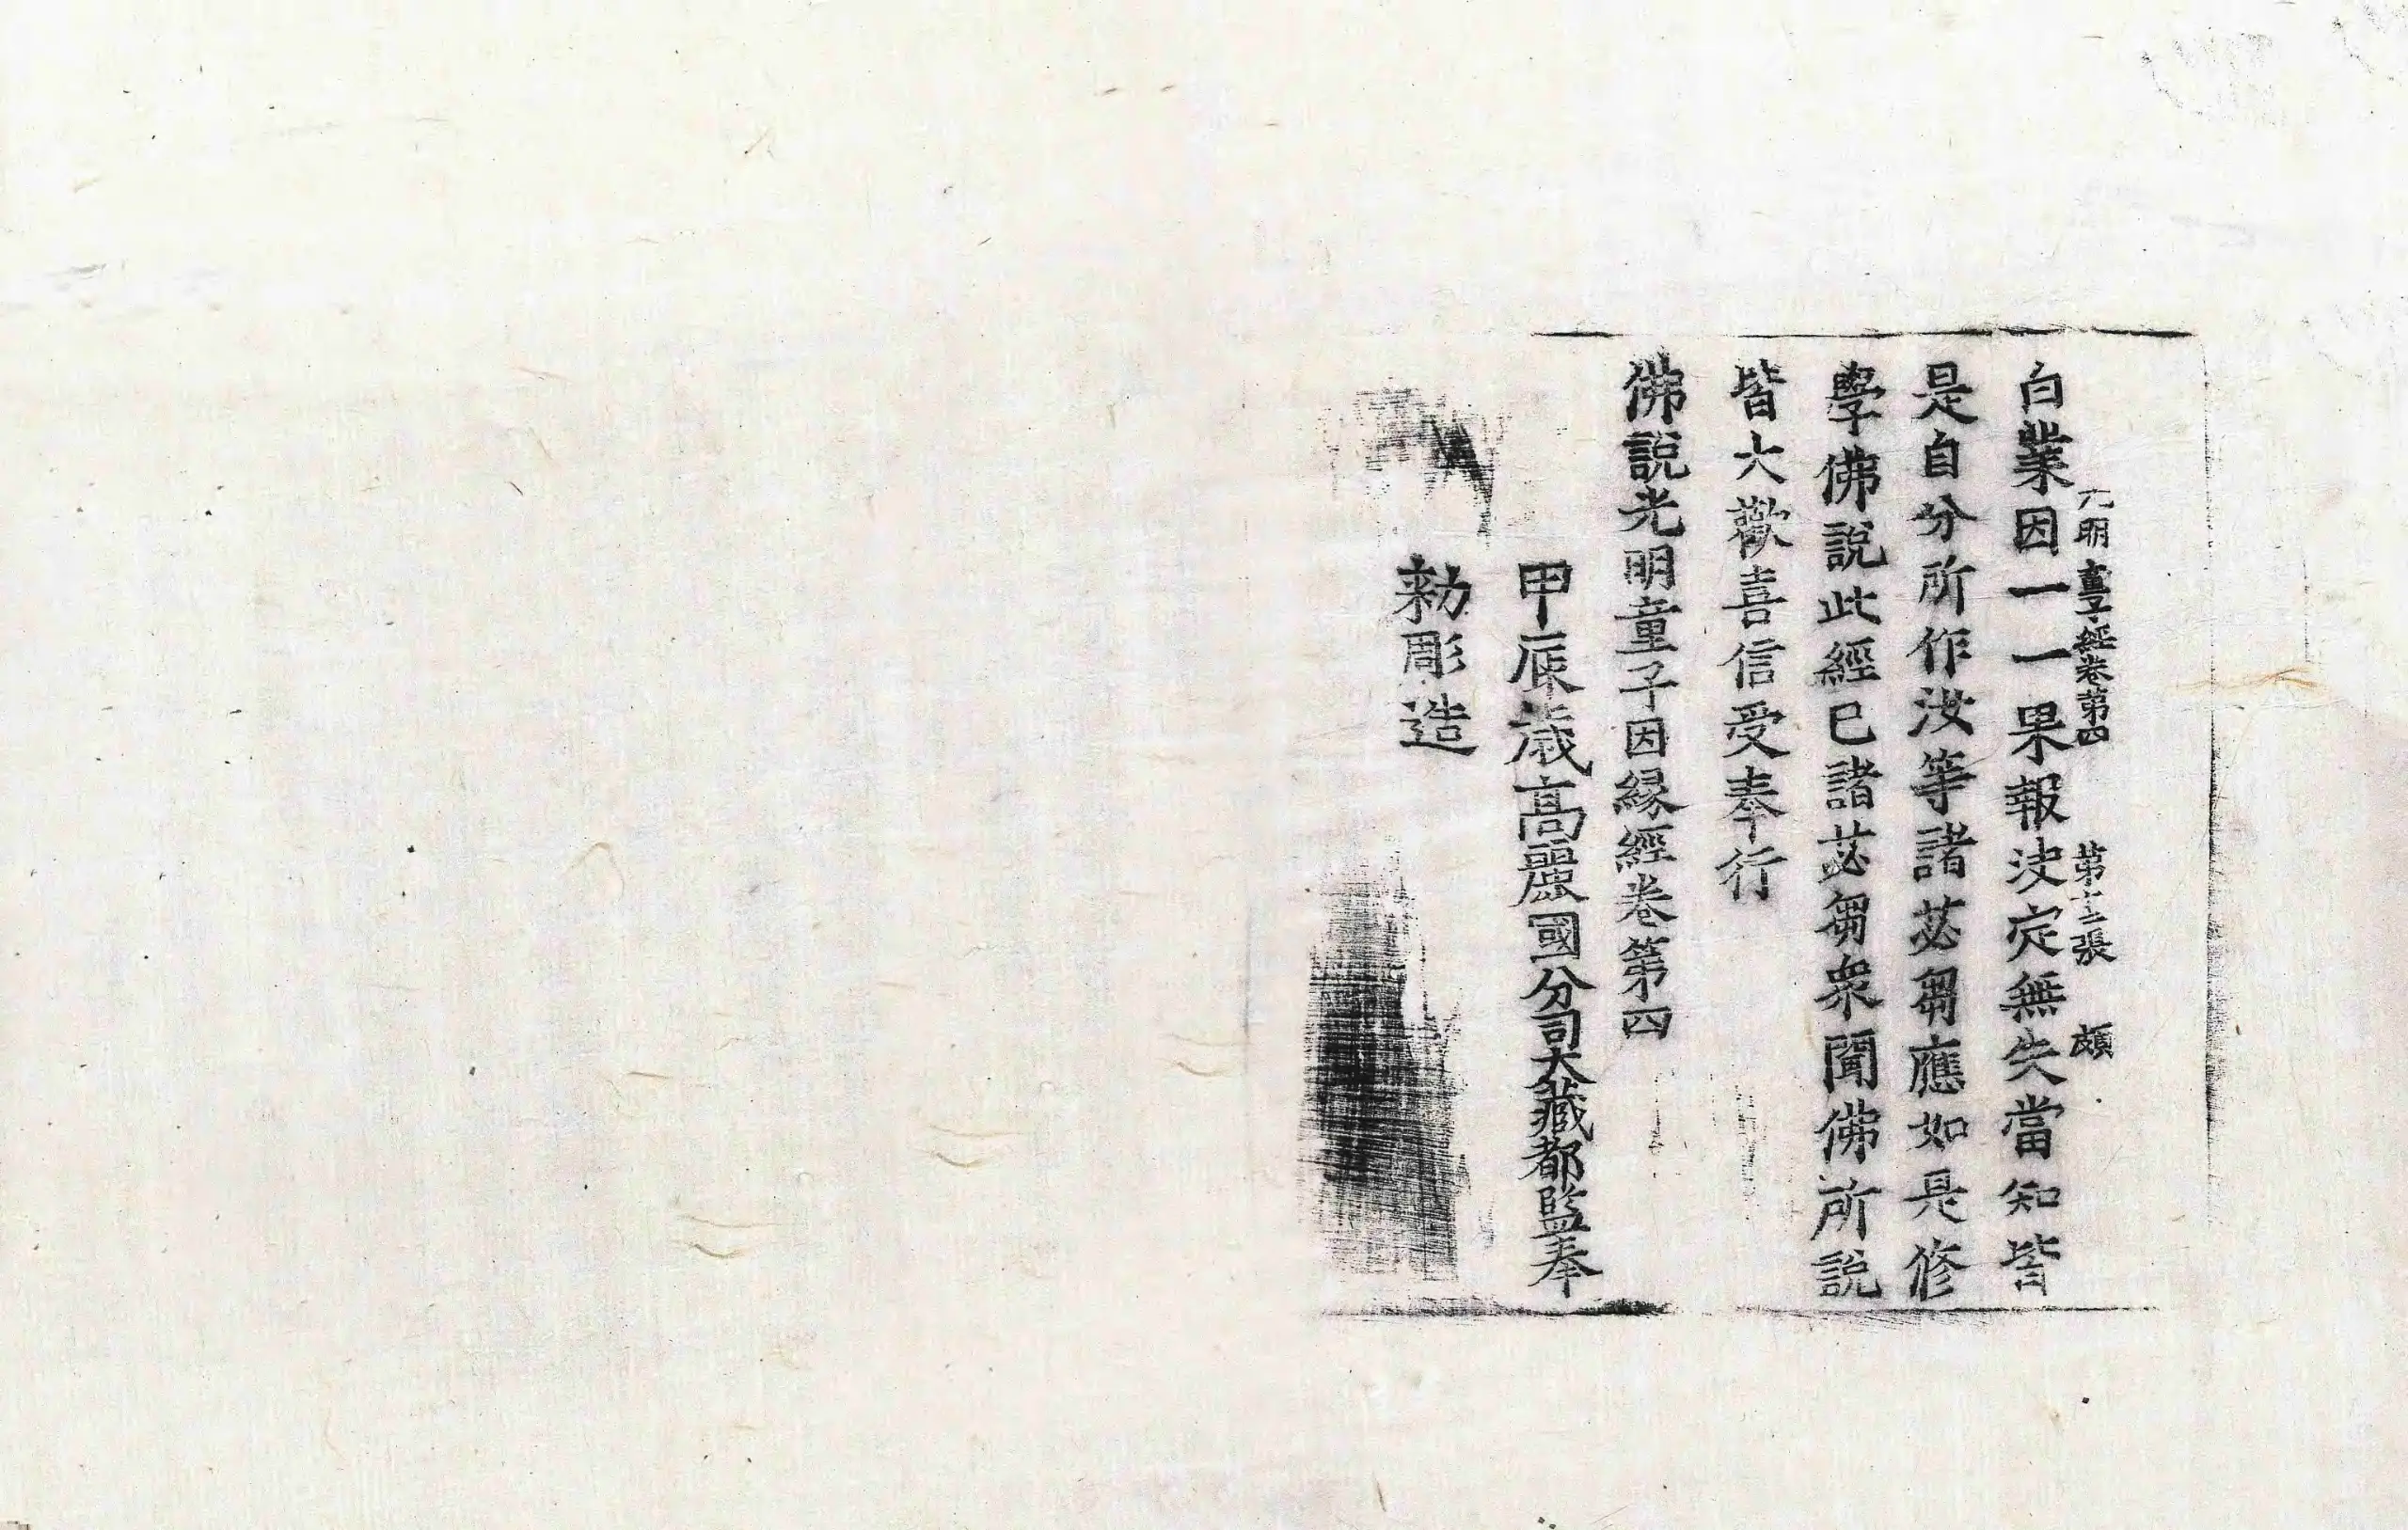 光明童子經卷第四 第十二張 頗
白業因一一果報决定無失當知皆
是自分所作汝等諸苾芻應如是修
學佛說此經已諸苾芻衆聞佛所說
皆大歡喜信受奉行
佛說光明童子因縁經卷第四
甲辰歲高麗國分司大藏都監奉
勑彫造